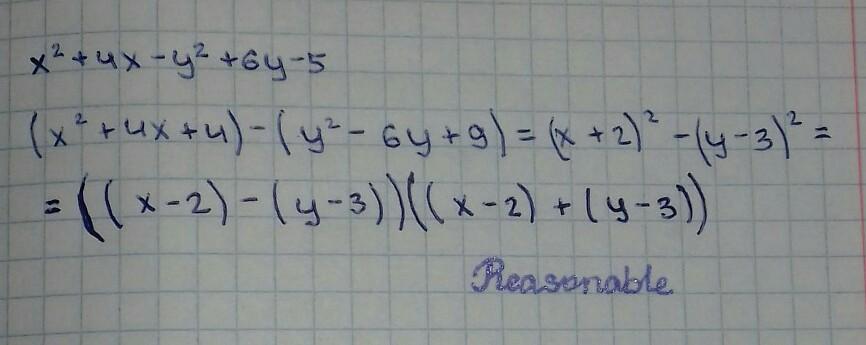 x² + 4x - y² + 6y - 5
(x² + 4x + 4) - (y² - 6y + 9) = (x + 2)² - (y - 3)² =
= ((x - 2) - (y - 3))((x - 2) + (y - 3))
Reasonable